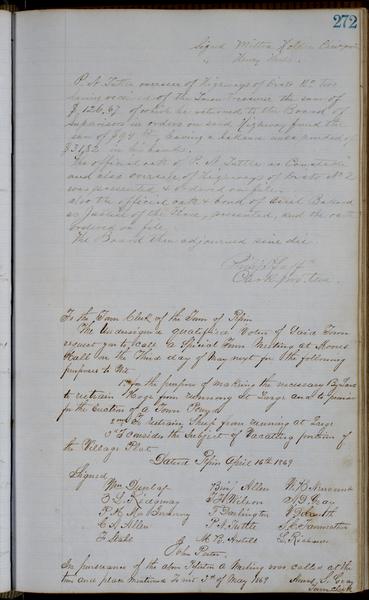 272
Signed Milton
Henry
P. N. Tuttle overseer of Highways of Dist No two
having received of the Town Treasurer the sum of
$126.37 of which he returned to the Board of
Supervisors in orders on said Highway fund the
sum of $94 leaving a balance unexpended of
$31.82 in his hands.
The official oath of P. N. Tuttle as Constable
and also overseer of Highways of Dist No 2
was presented & ordered on file.
also the official oath & bond of
as Justice of the Peace, presented, and the oath
ordered on file
The Board then adjourned sine die.
Clerk pro. tem
To the Town Clerk of the Town of Pepin
The undersigned qualified Voters of said Town
request you to call a Special Town Meeting at
Hall on the Third day of May next for the following
purposes to wit
1st For the purpose of making the necessary By Laws
to restrain Hogs from running at Large and to provide
for the Erection of a Town Pound
2nd To restrain Sheep from running at Large
3d To consider the Subject of Vacating portion of
the Village Plat.
Dated Pepin April 16th 1869
Signed
Wm Dunlap Benj Allen
Ridgway T. H. Wilson
T. Darlington
C. N. Allen P. N. Tuttle
John Pater
In pursuance of the above Petition a Meeting was called at the
time and place mentioned to wit 3d of May 1869
Town Clerk